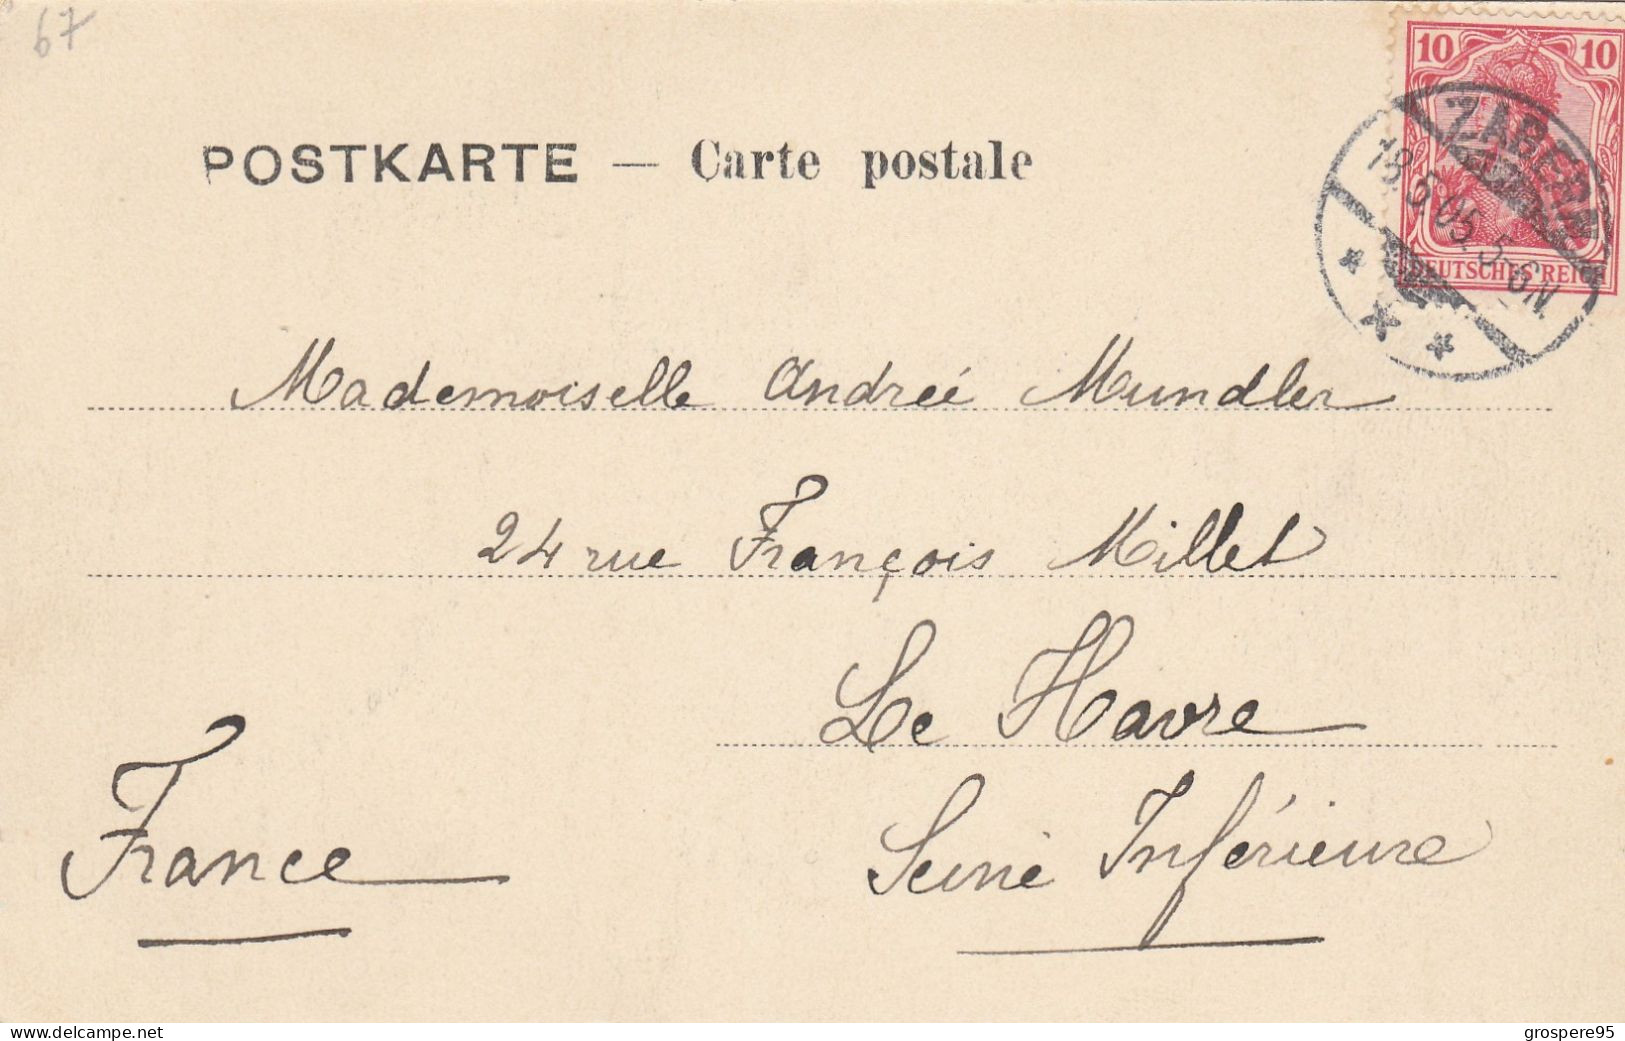 67
POSTKARTE — Carte postale
10 10
DEUTSCHES REICH
ZABERN
18.5.05. 5-6N.
Mademoiselle Andrée Mundler
24 rue François Millet
Le Havre
Seine Inférieure
France
delcampe.net
grospere95